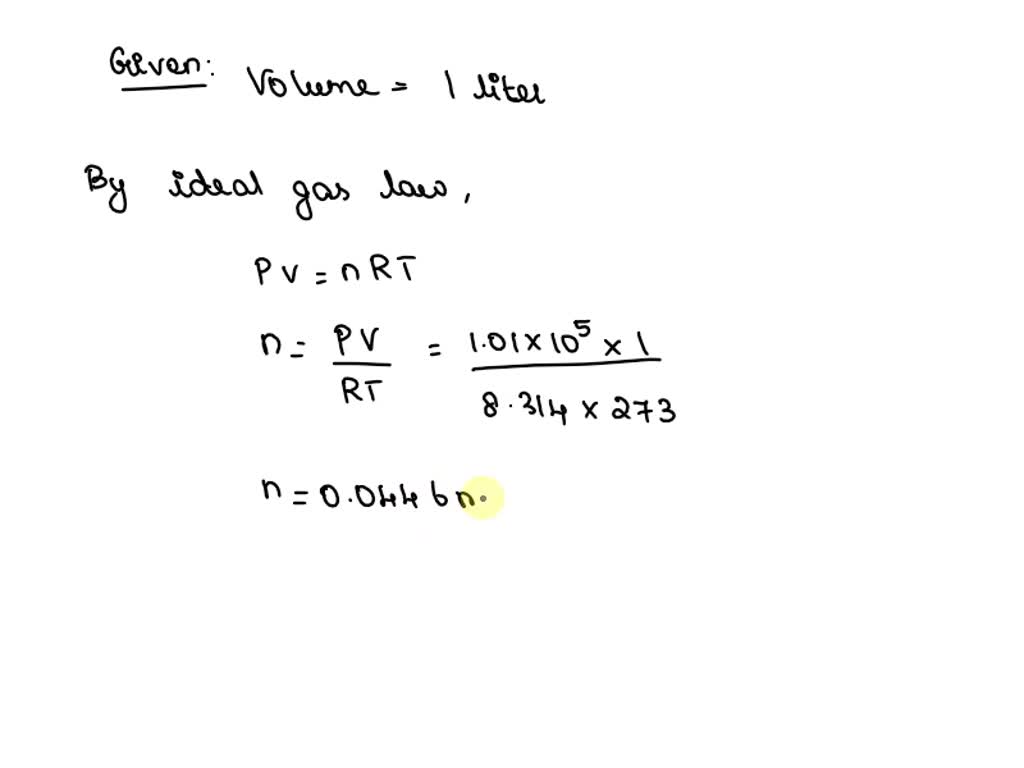 Given: Volume = 1 liter
By ideal gas law,
PV = nRT
n = PV / RT = 1.01 × 10⁵ × 1 / 8.314 × 273
n = 0.0446 n